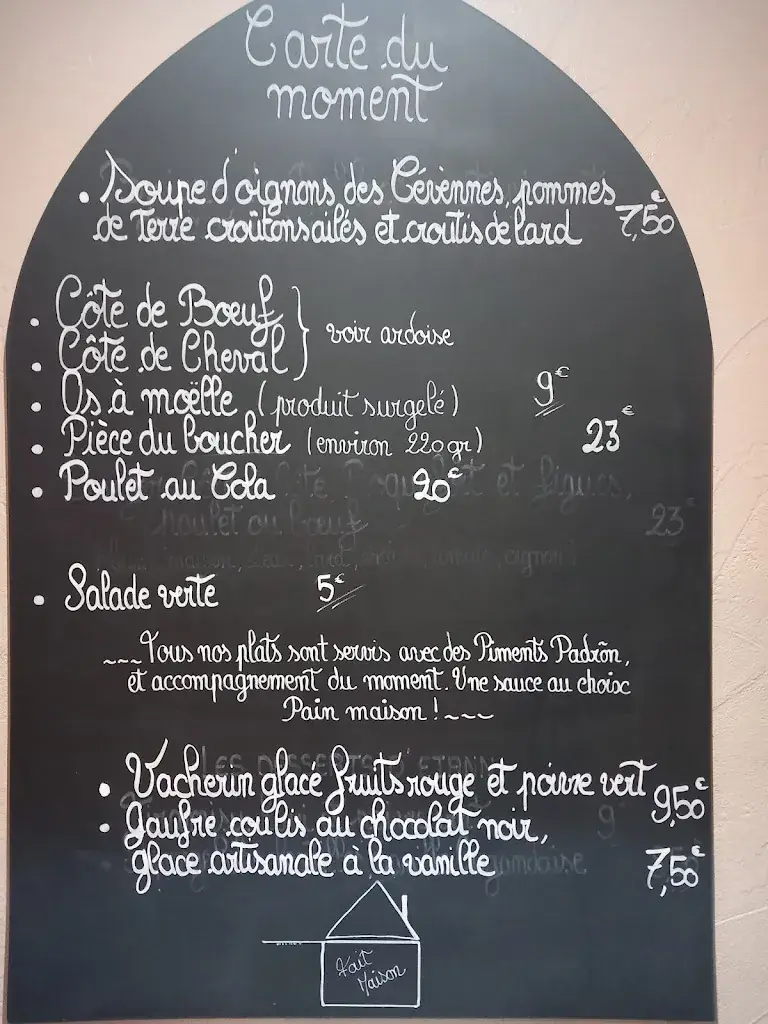 Carte du
moment
. Soupe d'oignons des Cévennes, pommes
de Terre croûtons ailés et croutis de lard 7,50€
. Côte de Boeuf
. Côte de Cheval } voir ardoise
. Os à moëlle (produit surgelé) 9€
. Pièce du boucher (environ 220gr) 23€
. Poulet au Cola 20€
. Salade verte 5€
~~~Tous nos plats sont servis avec des Piments Padrõn,
et accompagnement du moment. Une sauce au choix
Pain maison !~~~
. Vacherin glacé fruits rouge et poivre vert 9,50€
. Gaufre coulis au chocolat noir,
glace artisanale à la vanille 7,50€
Fait
Maison